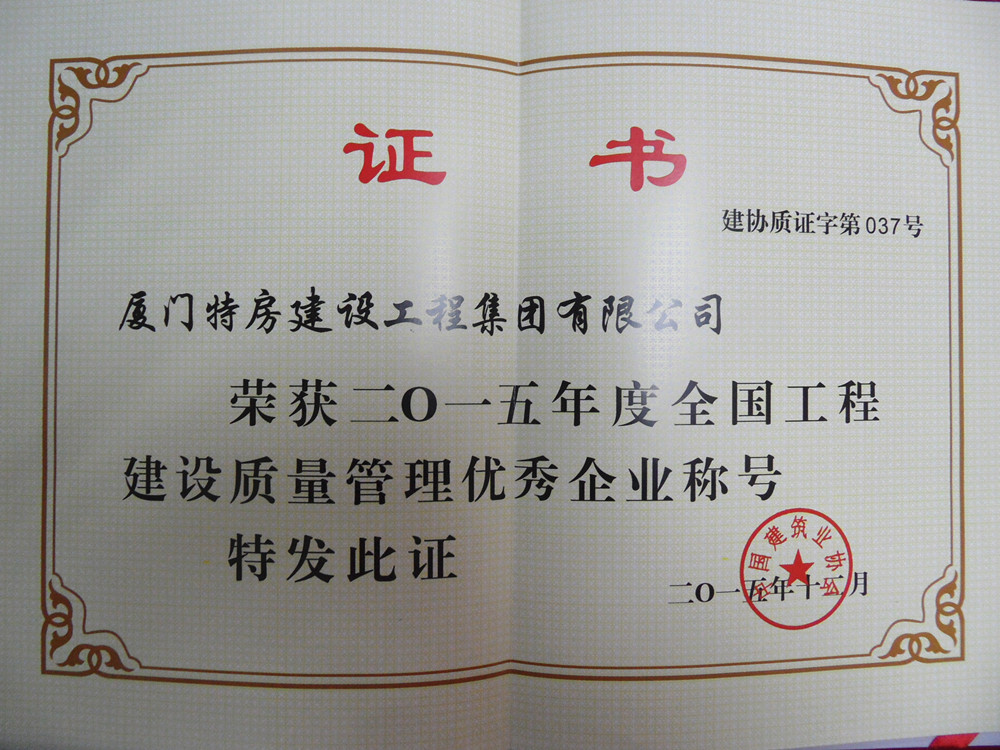 证书
建协质证字第037号
厦门特房建设工程集团有限公司
荣获二O一五年度全国工程
建设质量管理优秀企业称号
特发此证
中国建筑业协会
二O一五年十二月